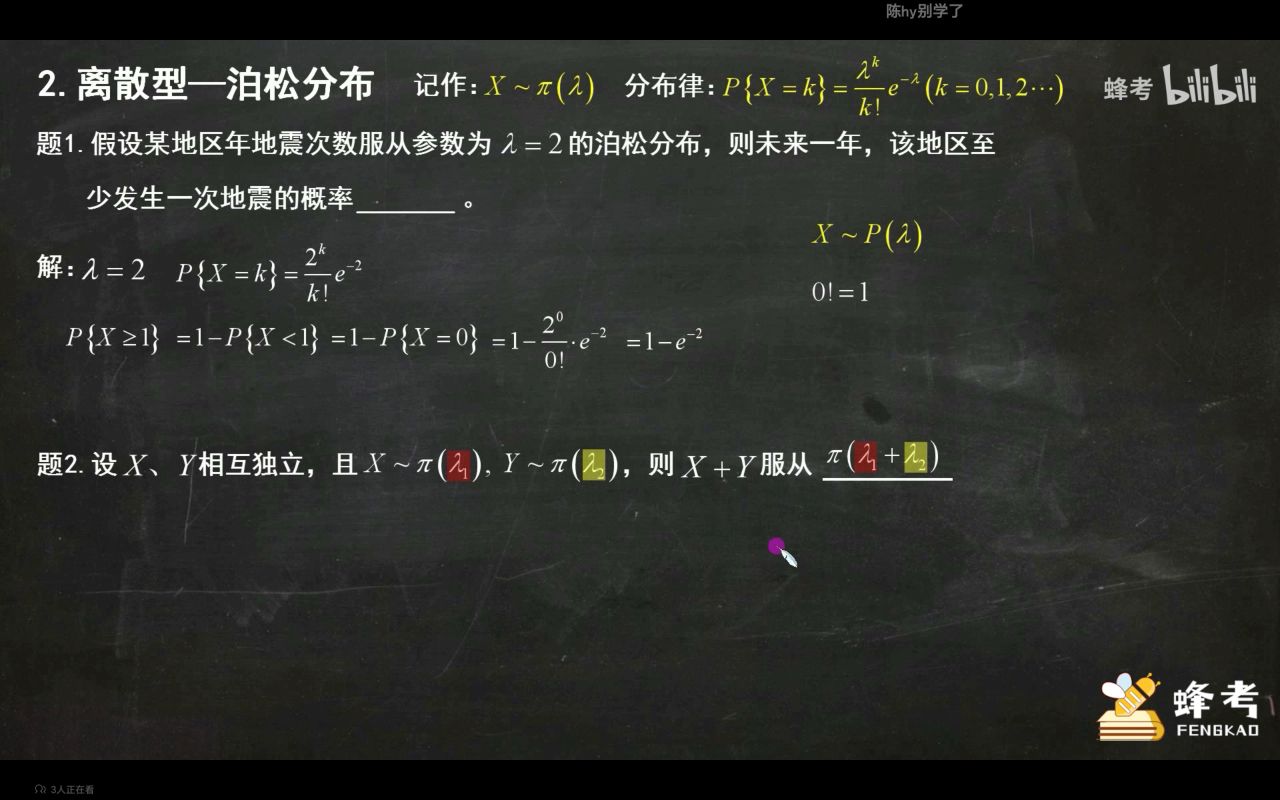 陈hy别学了
2.离散型—泊松分布 记作：X ~ π(λ) 分布律：P{X = k} = λ^k/k! e^{-λ} (k = 0,1,2⋯) 蜂考 bilibili
题1.假设某地区年地震次数服从参数为 λ = 2 的泊松分布，则未来一年，该地区至
少发生一次地震的概率______。
X ~ P(λ)
解：λ = 2 P{X = k} = 2^k/k! e^{-2}
0! = 1
P{X ≥ 1} = 1 − P{X < 1} = 1 − P{X = 0} = 1 − 2^0/0! · e^{-2} = 1 − e^{-2}
题2.设 X、Y相互独立，且 X ~ π(λ₁), Y ~ π(λ₂)，则 X + Y 服从 π(λ₁ + λ₂)
蜂考
FENGKAO
3人正在看